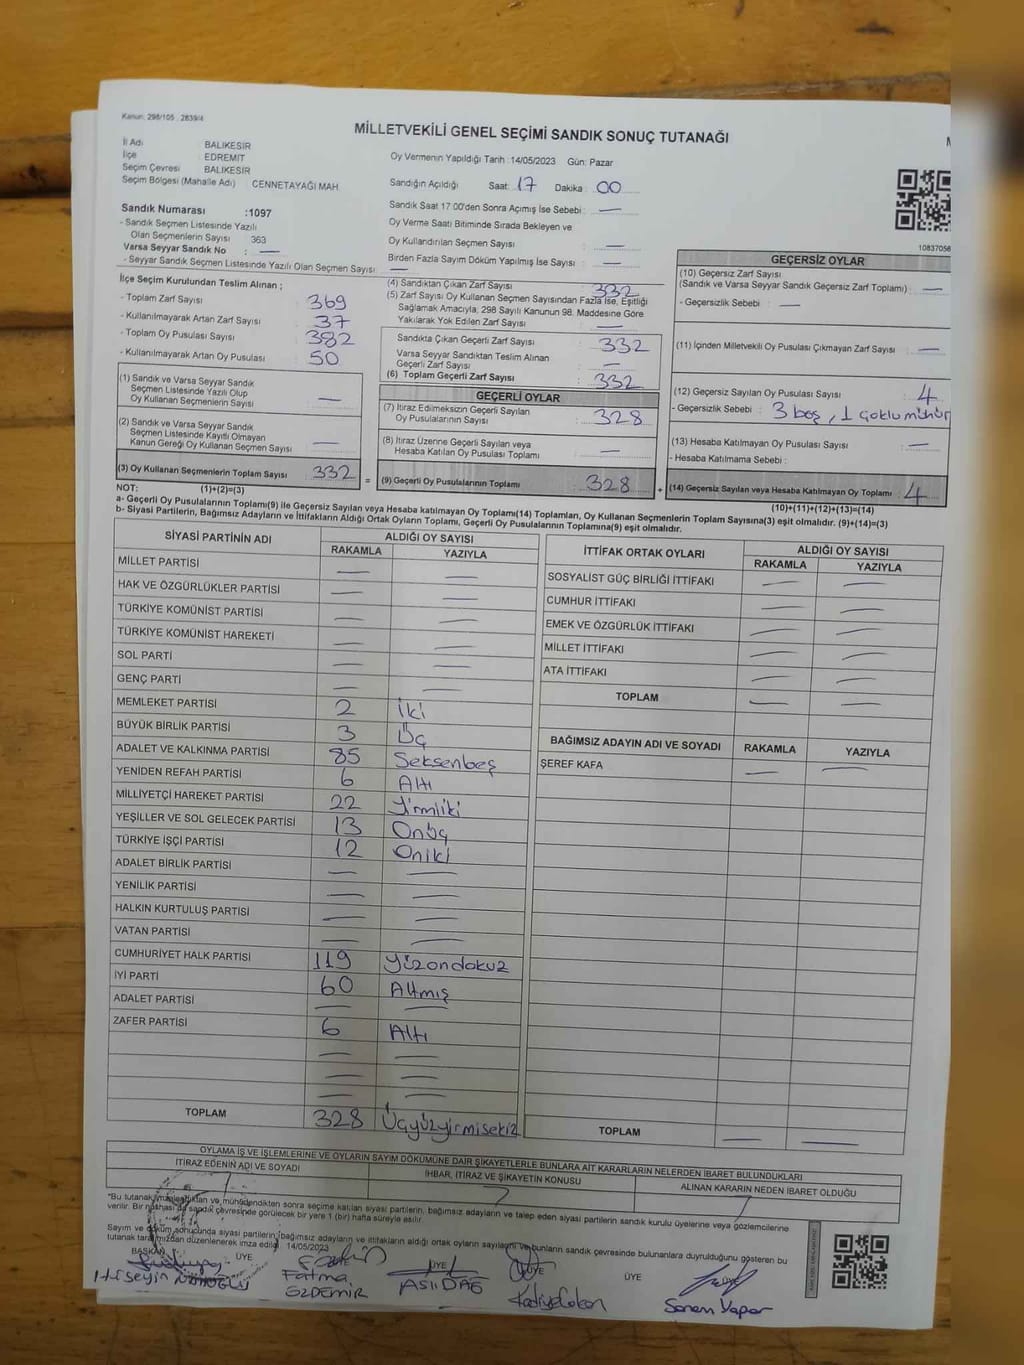 Kanun: 298/105 , 2839/4
MİLLETVEKİLİ GENEL SEÇİMİ SANDIK SONUÇ TUTANAĞI
İl Adı BALIKESİR
İlçe EDREMİT
Seçim Çevresi BALIKESİR
Seçim Bölgesi (Mahalle Adı) CENNETAYAĞI MAH.
Oy Vermenin Yapıldığı Tarih :14/05/2023 Gün: Pazar
Sandığın Açıldığı Saat: 17 Dakika : 00
Sandık Saat 17:00'den Sonra Açımış İse Sebebi : —
Oy Verme Saati Bitiminde Sırada Bekleyen ve
Oy Kullandırılan Seçmen Sayısı : —
Birden Fazla Sayım Döküm Yapılmış İse Sayısı : —
Sandık Numarası :1097
- Sandık Seçmen Listesinde Yazılı
Olan Seçmenlerin Sayısı 363
Varsa Seyyar Sandık No : —
- Seyyar Sandık Seçmen Listesinde Yazılı Olan Seçmen Sayısı : —
10837056
İlçe Seçim Kurulundan Teslim Alınan ;
- Toplam Zarf Sayısı : 369
- Kullanılmayarak Artan Zarf Sayısı : 37
- Toplam Oy Pusulası Sayısı : 382
- Kullanılmayarak Artan Oy Pusulası : 50
(1) Sandık ve Varsa Seyyar Sandık
Seçmen Listesinde Yazılı Olup
Oy Kullanan Seçmenlerin Sayısı : —
(2) Sandık ve Varsa Seyyar Sandık
Seçmen Listesinde Kayıtlı Olmayan
Kanun Gereği Oy Kullanan Seçmen Sayısı : —
(3) Oy Kullanan Seçmenlerin Toplam Sayısı : 332
(4) Sandıktan Çıkan Zarf Sayısı : 332
(5) Zarf Sayısı Oy Kullanan Seçmen Sayısından Fazla İse, Eşitliği
Sağlamak Amacıyla, 298 Sayılı Kanunun 98. Maddesine Göre
Yakılarak Yok Edilen Zarf Sayısı : —
Sandıkta Çıkan Geçerli Zarf Sayısı : 332
Varsa Seyyar Sandıktan Teslim Alınan
Geçerli Zarf Sayısı : —
(6) Toplam Geçerli Zarf Sayısı : 332
GEÇERLİ OYLAR
(7) İtiraz Edilmeksizin Geçerli Sayılan
Oy Pusulalarının Sayısı : 328
(8) İtiraz Üzerine Geçerli Sayılan veya
Hesaba Katılan Oy Pusulası Toplamı : —
= (9) Geçerli Oy Pusulalarının Toplamı : 328
GEÇERSİZ OYLAR
(10) Geçersiz Zarf Sayısı
(Sandık ve Varsa Seyyar Sandık Geçersiz Zarf Toplamı) : —
- Geçersizlik Sebebi : —
(11) İçinden Milletvekili Oy Pusulası Çıkmayan Zarf Sayısı : —
(12) Geçersiz Sayılan Oy Pusulası Sayısı : 4
- Geçersizlik Sebebi : 3 boş, 1 çoklu mühür
(13) Hesaba Katılmayan Oy Pusulası Sayısı : —
- Hesaba Katılmama Sebebi :
+ (14) Geçersiz Sayılan veya Hesaba Katılmayan Oy Toplamı : 4
NOT: (1)+(2)=(3) (10)+(11)+(12)+(13)=(14)
a- Geçerli Oy Pusulalarının Toplamı(9) ile Geçersiz Sayılan veya Hesaba katılmayan Oy Toplamı(14) Toplamları, Oy Kullanan Seçmenlerin Toplam Sayısına(3) eşit olmalıdır. (9)+(14)=(3)
b- Siyasi Partilerin, Bağımsız Adayların ve İttifakların Aldığı Ortak Oyların Toplamı, Geçerli Oy Pusulalarının Toplamına(9) eşit olmalıdır.
SİYASİ PARTİNİN ADI ALDIĞI OY SAYISI
RAKAMLA YAZIYLA
MİLLET PARTİSİ — —
HAK VE ÖZGÜRLÜKLER PARTİSİ — —
TÜRKİYE KOMÜNİST PARTİSİ — —
TÜRKİYE KOMÜNİST HAREKETİ — —
SOL PARTİ — —
GENÇ PARTİ — —
MEMLEKET PARTİSİ 2 İki
BÜYÜK BİRLİK PARTİSİ 3 Üç
ADALET VE KALKINMA PARTİSİ 85 Seksenbeş
YENİDEN REFAH PARTİSİ 6 Altı
MİLLİYETÇİ HAREKET PARTİSİ 22 Yirmiiki
YEŞİLLER VE SOL GELECEK PARTİSİ 13 Onüç
TÜRKİYE İŞÇİ PARTİSİ 12 Oniki
ADALET BİRLİK PARTİSİ — —
YENİLİK PARTİSİ — —
HALKIN KURTULUŞ PARTİSİ — —
VATAN PARTİSİ — —
CUMHURİYET HALK PARTİSİ 119 Yüzondokuz
İYİ PARTİ 60 Altmış
ADALET PARTİSİ — —
ZAFER PARTİSİ 6 Altı
— —
— —
— —
TOPLAM 328 Üçyüzyirmisekiz
İTTİFAK ORTAK OYLARI ALDIĞI OY SAYISI
RAKAMLA YAZIYLA
SOSYALİST GÜÇ BİRLİĞİ İTTİFAKI — —
CUMHUR İTTİFAKI — —
EMEK VE ÖZGÜRLÜK İTTİFAKI — —
MİLLET İTTİFAKI — —
ATA İTTİFAKI — —
TOPLAM — —
BAĞIMSIZ ADAYIN ADI VE SOYADI RAKAMLA YAZIYLA
ŞEREF KAFA — —
TOPLAM — —
OYLAMA İŞ VE İŞLEMLERİNE VE OYLARIN SAYIM DÖKÜMÜNE DAİR ŞİKAYETLERLE BUNLARA AİT KARARLARIN NELERDEN İBARET BULUNDUKLARI
İTİRAZ EDENİN ADI VE SOYADI İHBAR, İTİRAZ VE ŞİKAYETİN KONUSU ALINAN KARARIN NEDEN İBARET OLDUĞU
*Bu tutanak imzalandıktan ve mühürlendikten sonra seçime katılan siyasi partilerin, bağımsız adayların ve talep eden siyasi partilerin sandık kurulu üyelerine veya gözlemcilerine
verilir. Bir nüshası da sandık çevresinde görülecek bir yere 1 (bir) hafta süreyle asılır.
Sayım ve döküm sonucunda siyasi partilerin, bağımsız adayların ve ittifakların aldığı ortak oyların sayılarını ve bunların sandık çevresinde bulunanlara duyrulduğunu gösteren bu
tutanak tarafımızdan düzenlenerek imza edildi. 14/05/2023
BAŞKAN ÜYE ÜYE ÜYE ÜYE
Hüseyin
Fatma ÖZDEMİR
ASLI DAĞ
Sanem Yapar